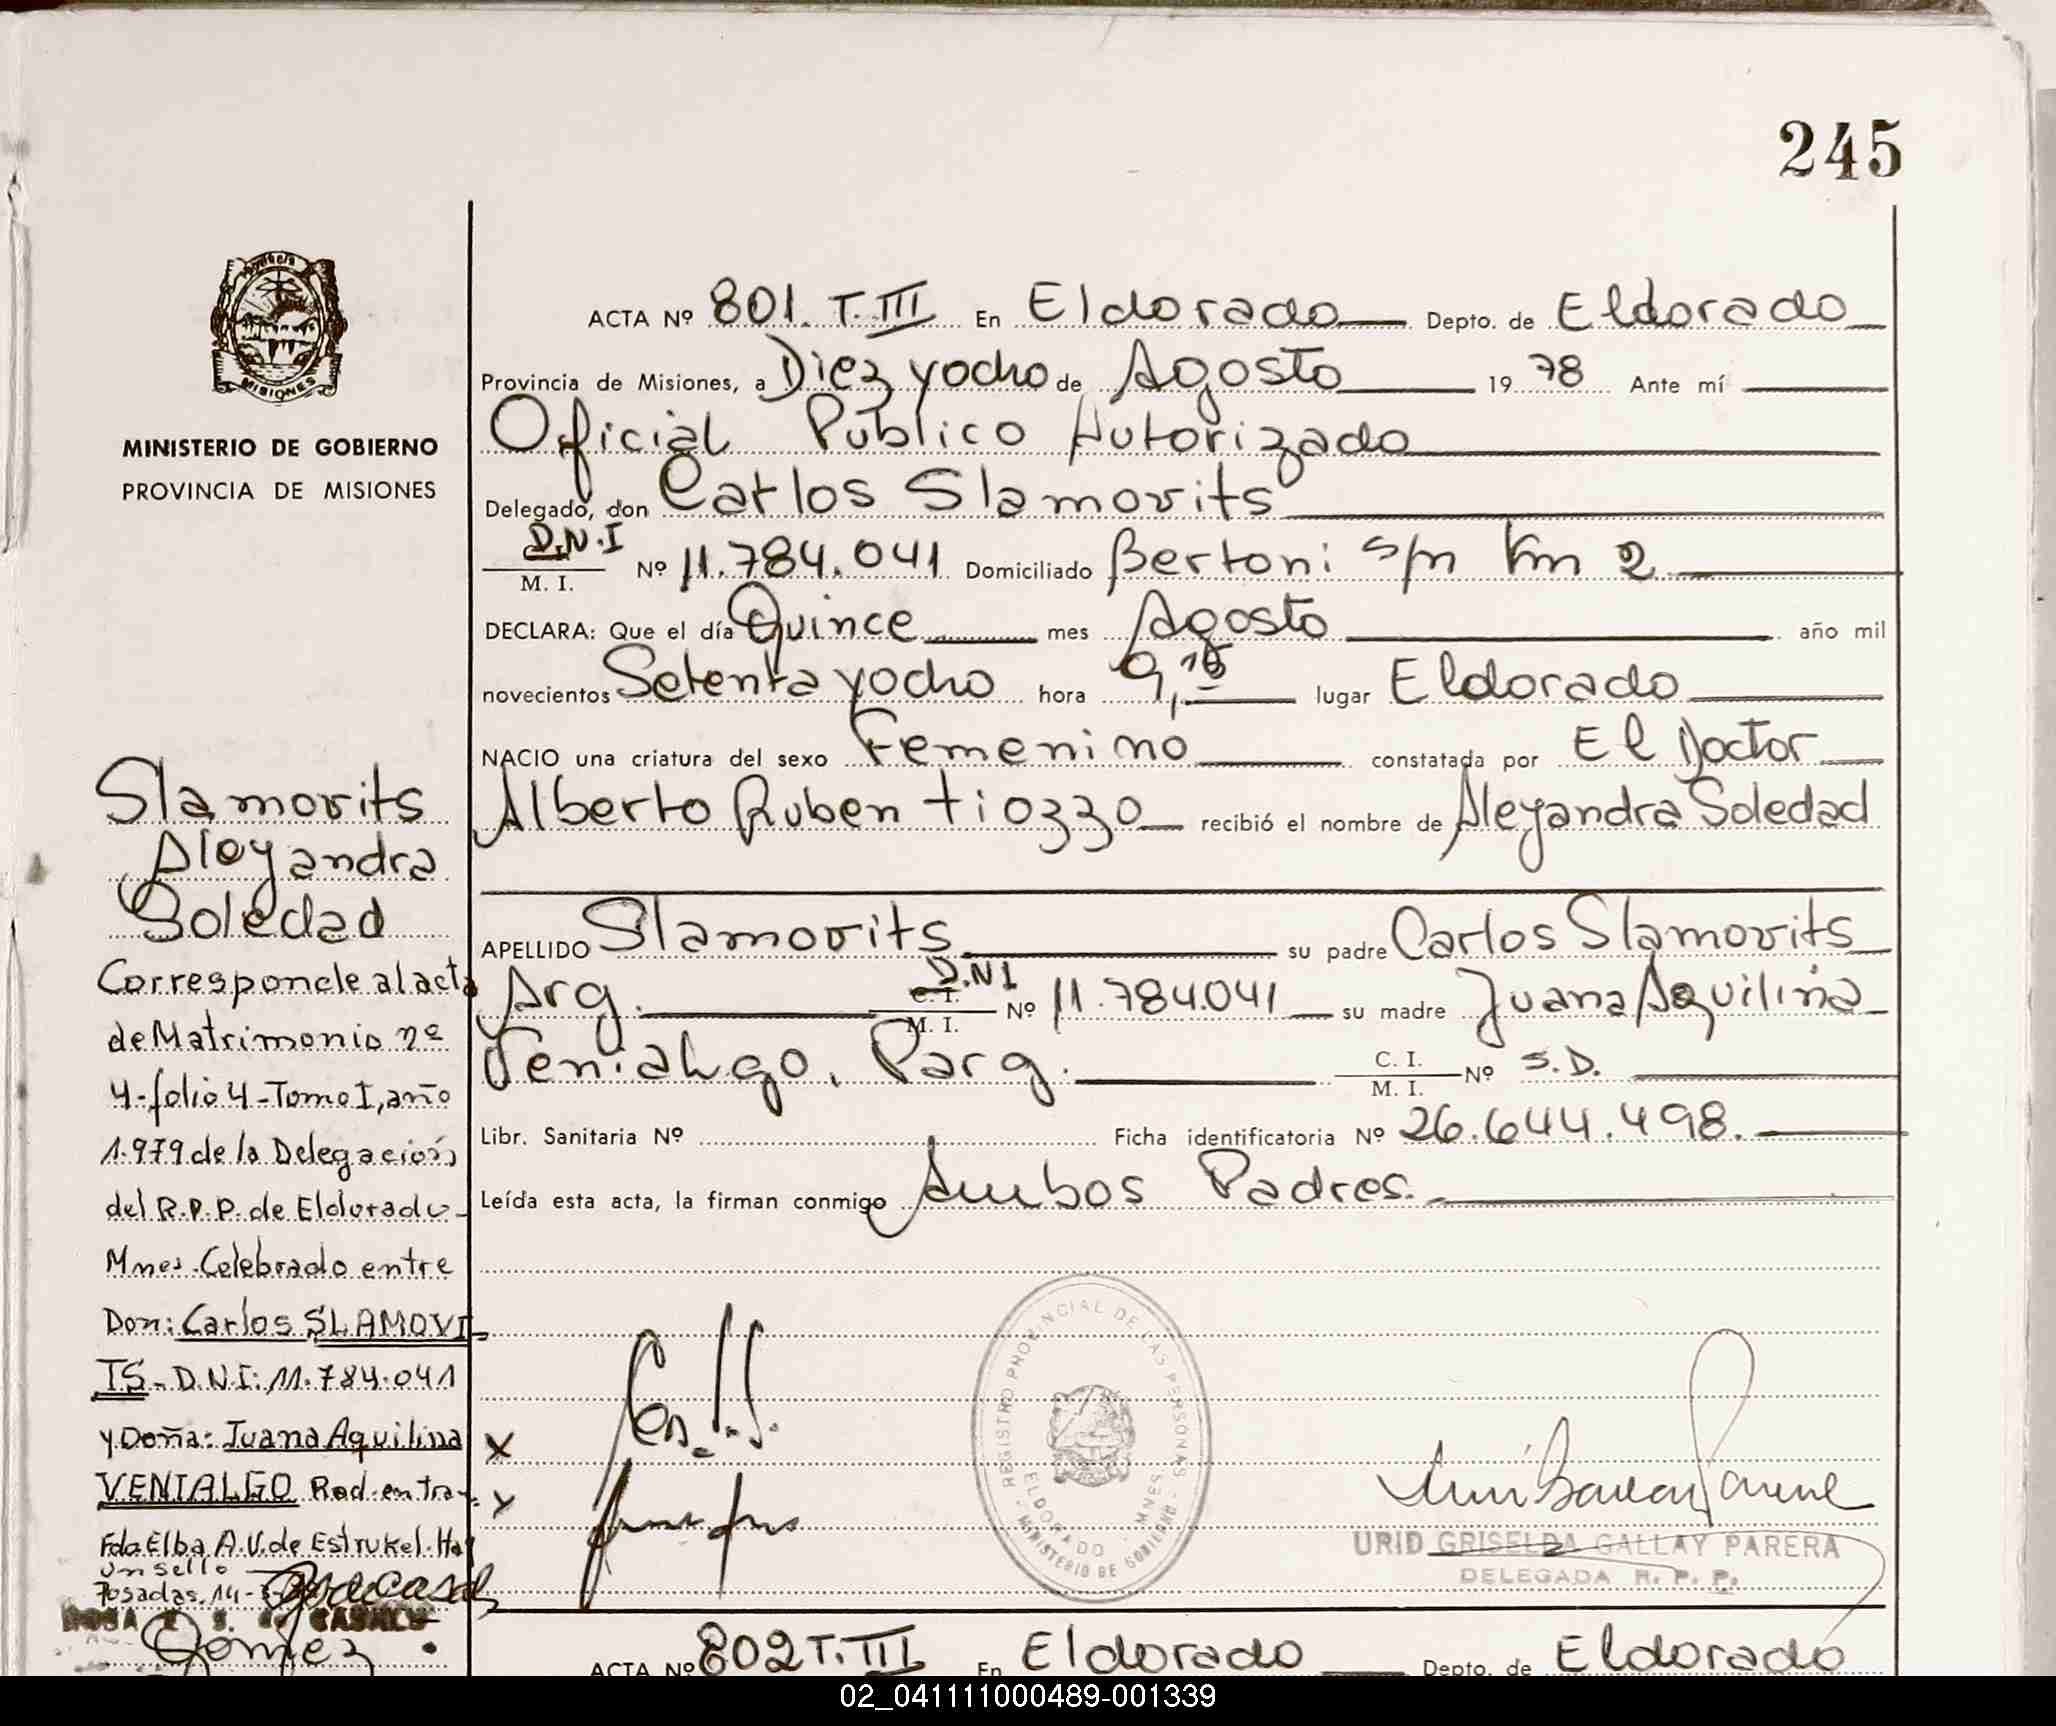 245
MISIONES
MINISTERIO DE GOBIERNO
PROVINCIA DE MISIONES
ACTA Nº 801. T. III En Eldorado Depto. de Eldorado
Provincia de Misiones, a Diez yocho de Agosto 19 78 Ante mí
Oficial Público Autorizado
Delegado, don Carlos Slamovits
D.N.I
M. I. Nº 11.784.041 Domiciliado Bertoni s/n Km 2
DECLARA: Que el día Quince mes Agosto año mil
novecientos Setenta yocho hora 9, lugar Eldorado
NACIO una criatura del sexo Femenino constatada por El Doctor
Alberto Ruben tiozzo recibió el nombre de Aleyandra Soledad
APELLIDO Slamovits su padre Carlos Slamovits
Arg. C. I. D.N.I
M. I. Nº 11.784.041 su madre Juana Aquilina
Venialgo, Parg. C. I.
M. I. Nº S.D.
Libr. Sanitaria Nº Ficha identificatoria Nº 26.644.498.
Leída esta acta, la firman conmigo Ambos Padres.
Slamovits
Aleyandra
Soledad
Corresponde al acta
de Matrimonio nº
4-folio 4-Tomo I, año
1.979 de la Delegación
del R.P.P. de Eldorado-
Mnes. Celebrado entre
Don: Carlos SLAMOVI-
TS- D.N.I: 11.784.041
y Doña: Juana Aquilina
VENIALGO Rad. entra.
Fdo Elba A.V. de Estrukel. Hay
un sello
Posadas, 14-
CASALS
Gomez
X
REGISTRO PROVINCIAL DE LAS PERSONAS
ELDORADO - MNES.
MINISTERIO DE GOBIERNO
URID GRISELDA GALLAY PARERA
DELEGADA R. P. P.
ACTA Nº 802 T. III En Eldorado Depto. de Eldorado
02_041111000489-001339